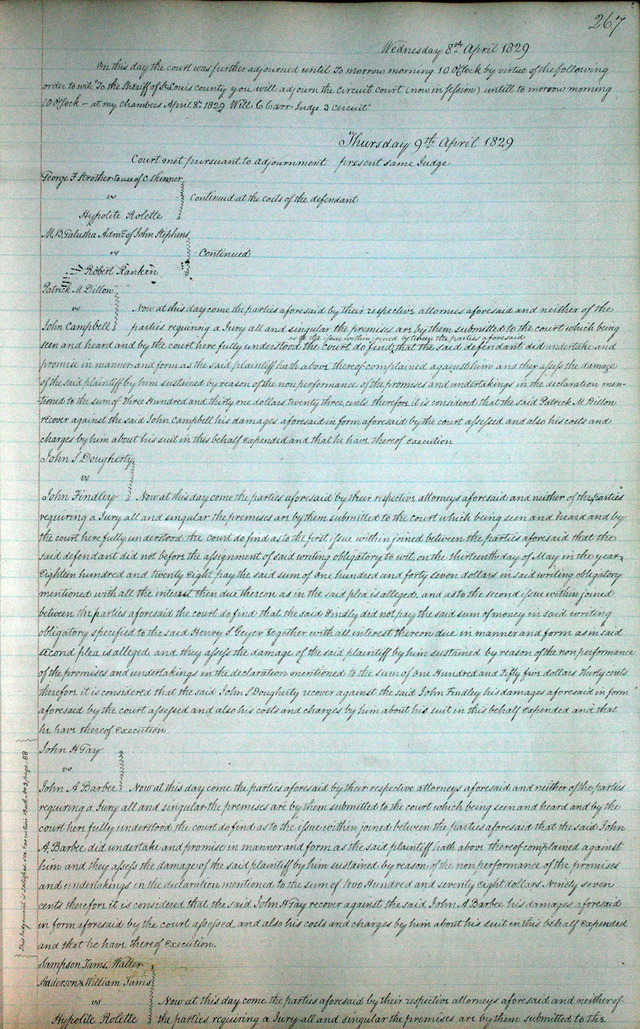 267
Wednesday 8th April 1829
On this day the court was further adjourned until To morrow morning 10 O'Clock by virtue of the following
order to wit "To the Sheriff of St Louis county you will adjourn the circuit court (now in session) untill to morrow morning
10 O'Clock - at my chambers April 8th 1829 Will C Carr Judge 3 circuit"
Thursday 9th April 1829
Court met pursuant to adjournment present same Judge
George F Strother to use of C Skinner
vs
Continued at the costs of the defendant
Hypolite Rolette
M.B. Galusha Admr of John Stephens
vs
Continued
Robert Rankin
Patrick M Dillon
vs
Now at this day come the parties aforesaid by their respective attornies aforesaid and neither of the
John Campbell parties requiring a Jury all and singular the premises are by them submitted to the court which being
as to the issue within joined between the parties aforesaid
seen and heard and by the court here fully understood the court do find that the said defendant did undertake and
promise in manner and form as the said plaintiff hath above thereof complained against him and they assess the damage
of the said plaintiff by him sustained by reason of the non performance of the promises and undertakings in the declaration men-
tioned to the sum of Three Hundred and thirty one dollars twenty three cents therefore it is considered that the said Patrick M Dillon
recover against the said John Campbell his damages aforesaid in form aforesaid by the court assessed and also his costs and
charges by him about his suit in this behalf expended and that he have thereof execution
John S Dougherty
vs
John Findley Now at this day come the parties aforesaid by their respective attorneys aforesaid and neither of the parties
requiring a Jury all and singular the premises are by them submitted to the court which being seen and heard and by
the court here fully understood the court do find as to the first issue within joined between the parties aforesaid that the
said defendant did not before the assignment of said writing obligatory to wit on the thirteenth day of May in the year
eighteen hundred and twenty eight pay the said sum of one hundred and forty seven dollars in said writing obligatory
mentioned with all the interest then due thereon as in the said plea is alleged, and as to the second issue within joined
between the parties aforesaid the court do find that the said Findly did not pay the said sum of money in said writing
obligatory specified to the said Henry S Geyer together with all interest thereon due in manner and form as in said
second plea is alleged and they assess the damage of the said plaintiff by him sustained by reason of the non performance
of the promises and undertakings in the declaration mentioned to the sum of One Hundred and Fifty five dollars Thirty cents
therefore it is considered that the said John S Dougherty recover against the said John Findley his damages aforesaid in form
aforesaid by the court assessed and also his costs and charges by him about his suit in this behalf expended and that
he have thereof execution
John H Gay
vs
John A Barbee Now at this day come the parties aforesaid by their respective attorneys aforesaid and neither of the parties
requiring a Jury all and singular the premises are by them submitted to the court which being seen and heard and by the
court here fully understood, the court do find as to the issue within joined between the parties aforesaid that the said John
A Barbee did undertake and promise in manner and form as the said plaintiff hath above thereof complained against
him and they assess the damage of the said plaintiff by him sustained by reason of the non performance of the promises
and undertakings in the declaration mentioned to the sum of two Hundred and seventy eight dollars Ninety seven
cents therefore it is considered that the said John H Gay recover against the said John A Barbee his damages aforesaid
in form aforesaid by the court assessed and also his costs and charges by him about his suit in this behalf expended
and that he have thereof execution.
This Judgment is satisfied via execution Book No 3 page 88
Sampson Tams, Walter
Anderson & William Tams
vs
Now at this day come the parties aforesaid by their respective attorneys aforesaid and neither of
Hypolite Rolette the parties requiring a Jury all and singular the premises are by them submitted to the